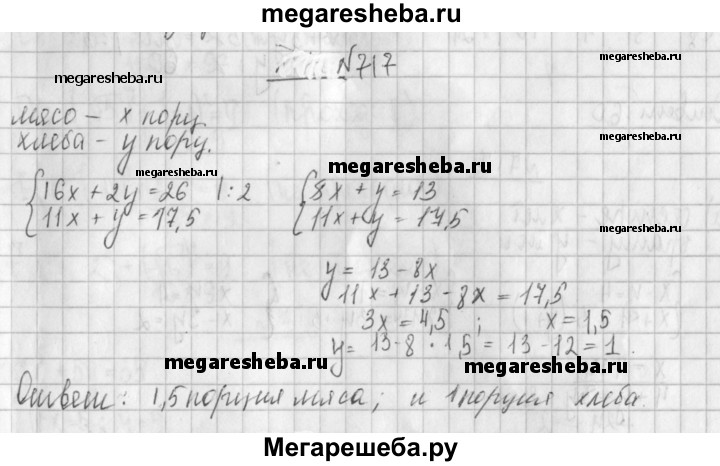 megaresheba.ru
№717
megaresheba.ru
megaresheba.ru
мясо – x пору
хлеба – y пору.
megaresheba.ru
megaresheba.ru
{16x + 2y = 26 |:2
11x + y = 17,5
{8x + y = 13
11x + y = 17,5
y = 13 - 8x
11x + 13 - 8x = 17,5
3x = 4,5 ; x = 1,5
y = 13 - 8 · 1,5 = 13 - 12 = 1.
megaresheba.ru
megaresheba.ru
Ответ: 1,5 порция мяса; и 1 порция хлеба.
Мегарешеба.ру